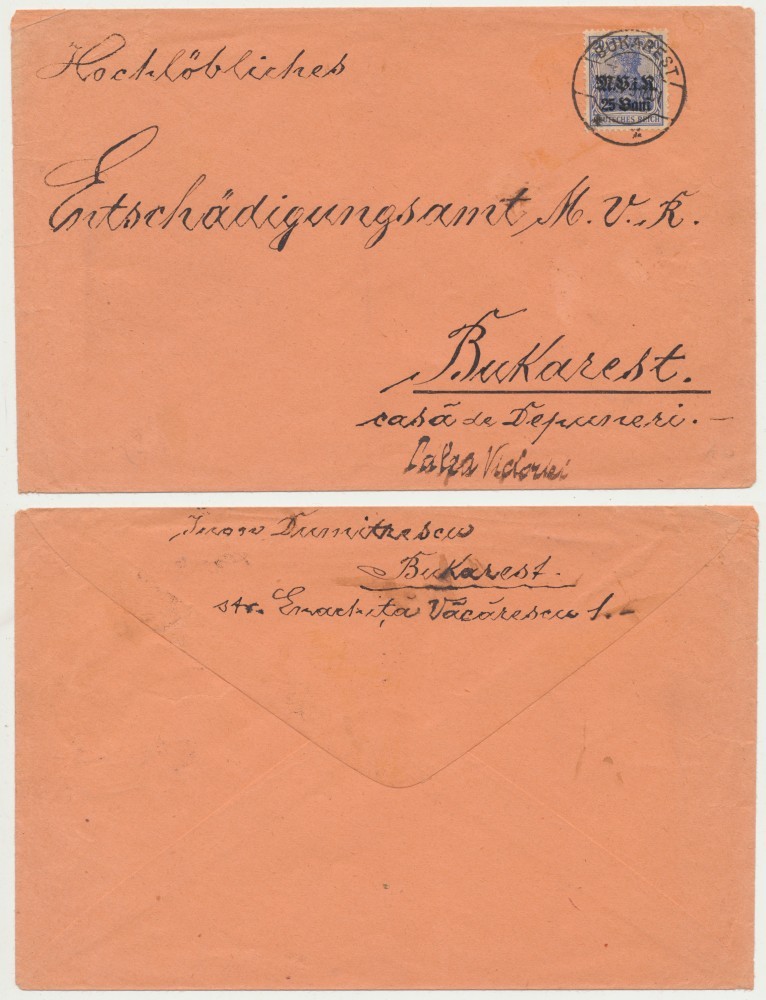 Hochlöbliches
BUKAREST
M.V.i.R.
25 Bani
DEUTSCHES REICH
Entschädigungsamt M. V. R.
Bukarest.
casă de Depuneri. —
Calea Victoriei
Dumitrescu
Bukarest.
str. Enachița Văcărescu 1. –